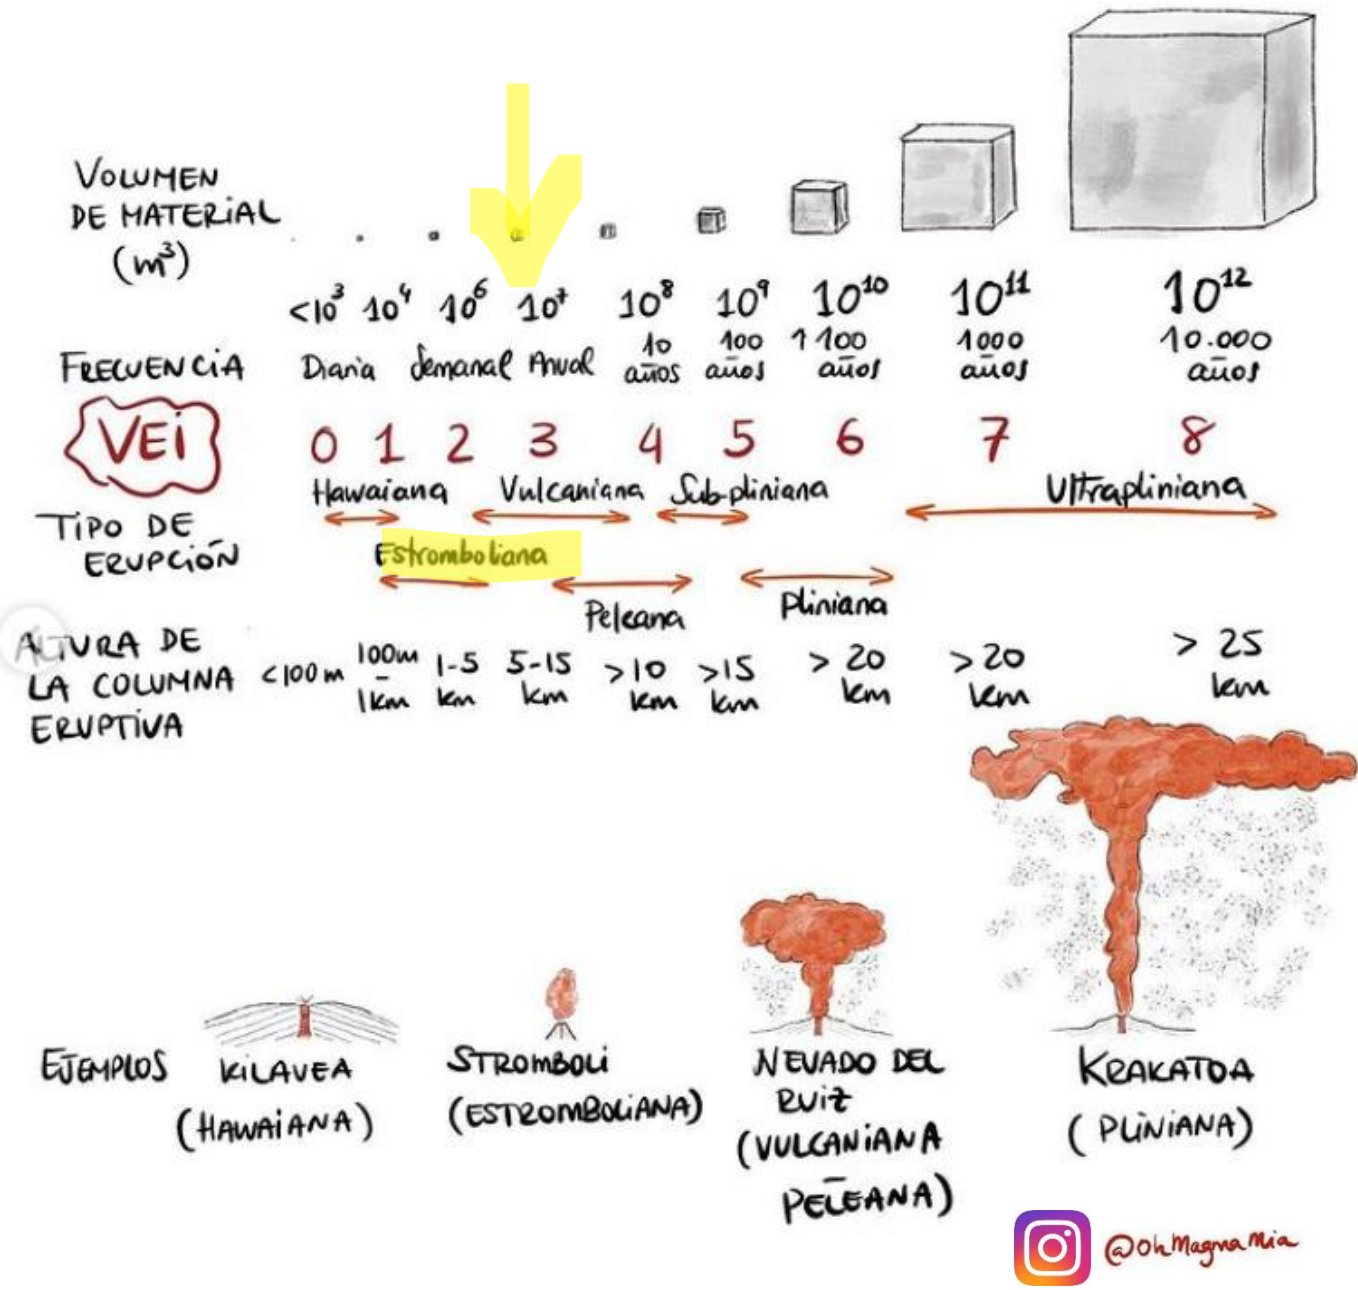 VOLUMEN
DE MATERIAL
(m³)
<10³ 10⁴ 10⁶ 10⁷ 10⁸ 10⁹ 10¹⁰ 10¹¹ 10¹²
FRECUENCIA Diaria Semanal Anual 10 años 100 años ↑100 años 1000 años 10.000 años
VEI 0 1 2 3 4 5 6 7 8
TIPO DE
ERUPCIÓN
Hawaiana Vulcaniana Sub-pliniana Ultrapliniana
Estromboliana
Peleana Pliniana
ALTURA DE
LA COLUMNA
ERUPTIVA
<100m 100m - 1km 1-5 km 5-15 km >10 km >15 km > 20 km >20 km > 25 km
EJEMPLOS
KILAVEA
(HAWAIANA)
STROMBOLI
(ESTROMBOLIANA)
NEVADO DEL
RUIZ
(VULCANIANA
–
PELEANA)
KRAKATOA
(PLINIANA)
@OhMagmaMia